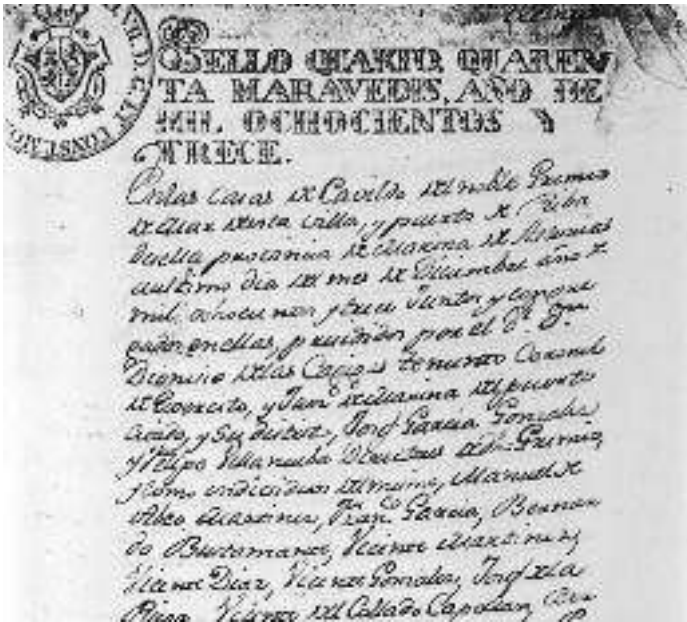 SELLO QUARTO, QUAREN
TA MARAVEDIS, AÑO DE
MIL OCHOCIENTOS Y
TRECE.
En las casas de Cavildo del noble Gremio
de Mar desta villa, y puerto de
provincia de Marina de Asturias
a ultimo dia del mes de Diciembre año de
mil ochocientos y trece Juntos y congre
gados en ellas, presididos por el Sr. Dn.
Dionisio de las Cagigas teniente Coronel
de Exercito, y de Marina del puerto
y su distrito, José Garcia Gonzalez
y Felipe Villanueba Directores de dho. Gremio,
y como individuos del mismo, Manuel de
Martinez, Franco. Garcia, Bernar
do Bustamante, Vicente Martinez,
Vicente Diaz, Vicente Gonzalez, José de la
Vicente del Collado